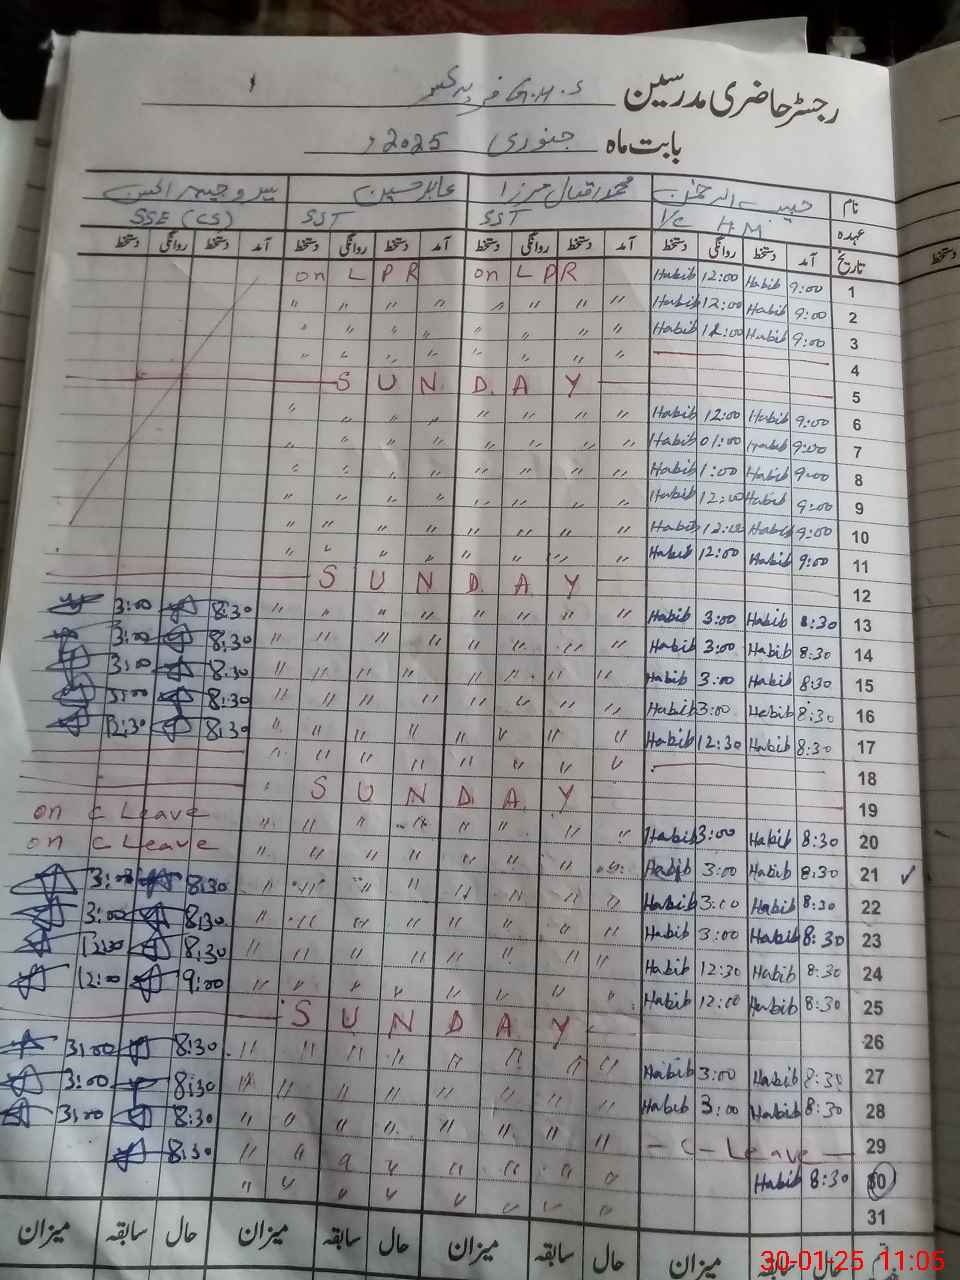 رجسٹر حاضری مدرسین G.H.S
بابت ماہ جنوری 2025ء
نام حبیب الرحمٰن محمد اقبال مرزا عابد حسین
عہدہ I/c H M SST SST SSE (CS)
تاریخ آمد دستخط روانگی دستخط آمد دستخط روانگی دستخط آمد دستخط روانگی دستخط آمد دستخط روانگی دستخط
1 9:00 Habib 12:00 Habib on L P R on L P R
2 9:00 Habib 12:00 Habib " " " " " " " "
3 9:00 Habib 12:00 Habib " " " " " " " "
4 " " " " " " " "
5 S U N D A Y
6 9:00 Habib 12:00 Habib " " " " " " " "
7 9:00 Habib 01:00 Habib " " " " " " " "
8 9:00 Habib 1:00 Habib " " " " " " " "
9 9:00 Habib 12:00 Habib " " " " " " " "
10 9:00 Habib 12:00 Habib " " " " " " " "
11 9:00 Habib 12:00 Habib " " " " " " " "
12 S U N D A Y
13 8:30 Habib 3:00 Habib " " " " " " " " 8:30 3:00
14 8:30 Habib 3:00 Habib " " " " " " " " 8:30 3:00
15 8:30 Habib 3:00 Habib " " " " " " " " 8:30 3:00
16 8:30 Habib 3:00 Habib " " " " " " " " 8:30 3:00
17 8:30 Habib 12:30 Habib " " " " " " " " 8:30 12:30
18 " " " " " " " "
19 S U N D A Y
20 8:30 Habib 3:00 Habib " " " " " " " " on C Leave
21 8:30 Habib 3:00 Habib " " " " " " " " on C Leave
22 8:30 Habib 3:00 Habib " " " " " " " " 8:30 3:00
23 8:30 Habib 3:00 Habib " " " " " " " " 8:30 3:00
24 8:30 Habib 12:30 Habib " " " " " " " " 8:30
25 8:30 Habib 12:00 Habib " " " " " " " " 9:00 12:00
26 S U N D A Y
27 8:30 Habib 3:00 Habib " " " " " " " " 8:30 3:00
28 8:30 Habib 3:00 Habib " " " " " " " " 8:30 3:00
29 - C - Leave - " " " " " " " " 8:30 3:00
30 8:30 Habib " " " " " " " " 8:30
31 " " " " " " " "
حال سابقہ میزان حال سابقہ میزان حال سابقہ میزان حال سابقہ میزان
30-01-25 11:05